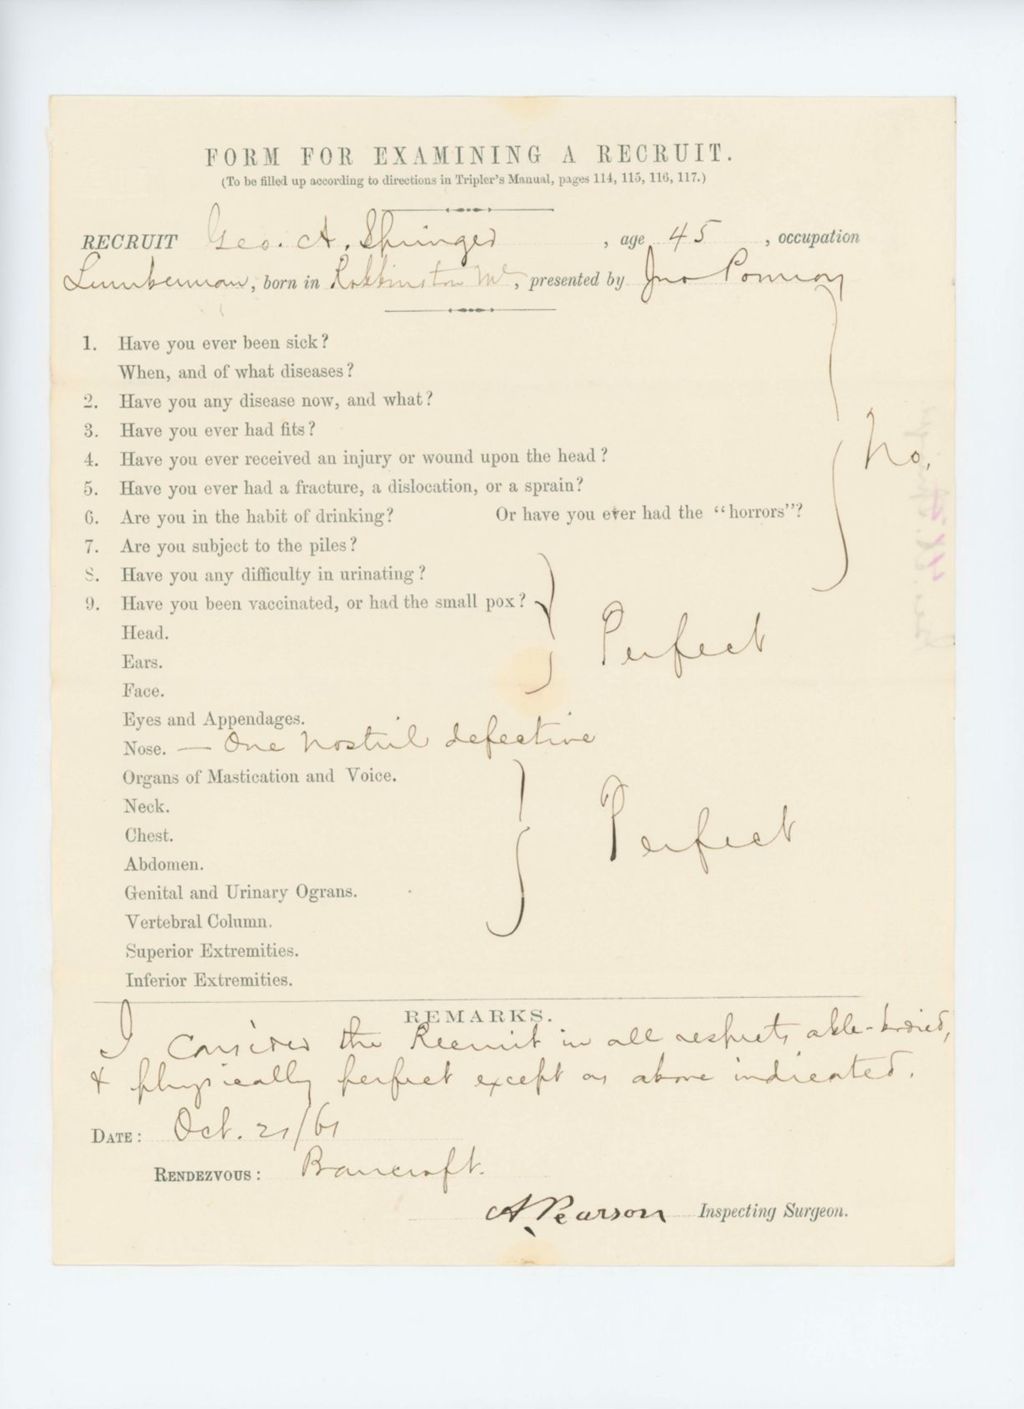 FORM FOR EXAMINING A RECRUIT.
(To be filled up according to directions in Tripler's Manual, pages 114, 115, 116, 117.)
RECRUIT Geo. A. Springer, age 45, occupation
Lumberman, born in Robbinston Me, presented by Jno Pomroy
1. Have you ever been sick?
When, and of what diseases?
2. Have you any disease now, and what?
3. Have you ever had fits?
4. Have you ever received an injury or wound upon the head?
No.
5. Have you ever had a fracture, a dislocation, or a sprain?
6. Are you in the habit of drinking? Or have you ever had the "horrors"?
7. Are you subject to the piles?
8. Have you any difficulty in urinating?
9. Have you been vaccinated, or had the small pox?
Head.
Perfect
Ears.
Face.
Eyes and Appendages.
Nose. — One nostril defective
Organs of Mastication and Voice.
Neck.
Chest.
Perfect
Abdomen.
Genital and Urinary Ograns.
Vertebral Column.
Superior Extremities.
Inferior Extremities.
REMARKS.
I consider the Recruit in all respects able-bodied,
& physically perfect except as above indicated.
DATE: Oct. 21/61
RENDEZVOUS: Bancroft.
A. Pearson Inspecting Surgeon.